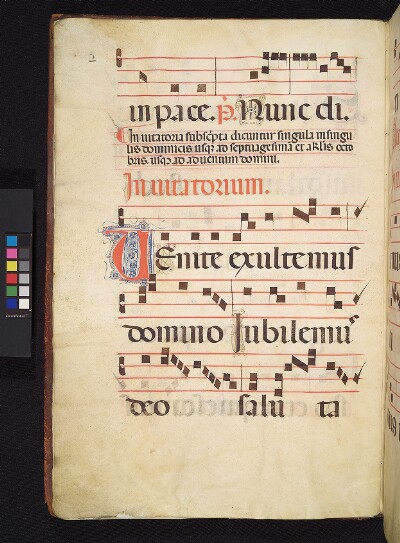 in pace. p̄. Nunc di.
Inuitatoria subscp̄ta dicuntur singula in singu
lis dominicis usq; ad septuagesima et a kl̄is octo
bris. usq; ad aduentum domini.
Inuitatorium.
VEnite exultemus
domino Jubilemus
deo salu ta